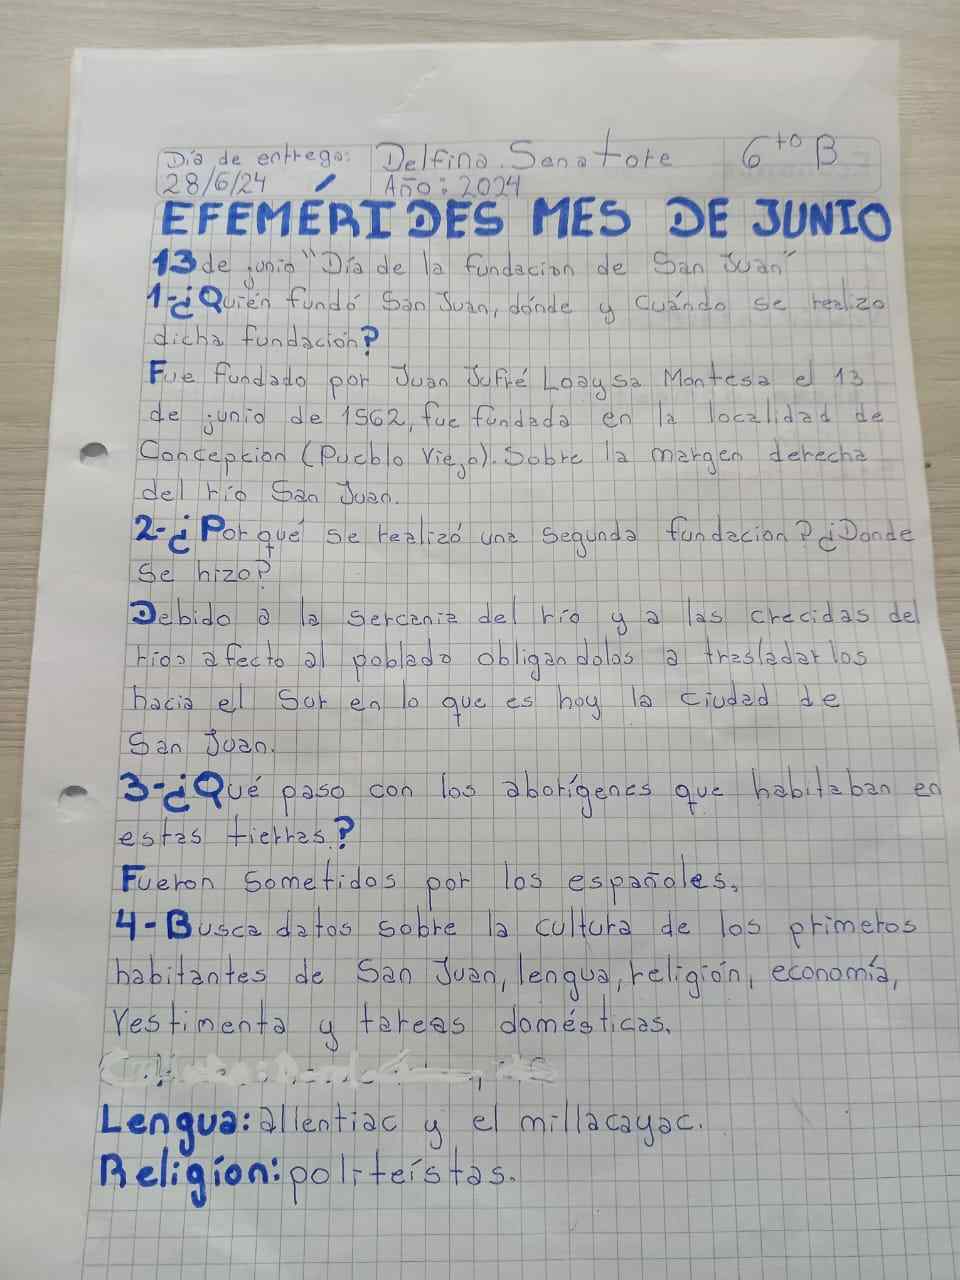 Día de entrega: Delfina Senatore 6to B
28/6/24 Año: 2024
EFEMÉRIDES MES DE JUNIO
13 de junio "Día de la fundacion de San Juan"
1-¿Quién fundó San Juan, dónde y cuándo se realizo
dicha fundación?
Fue fundado por Juan Jufré Loaysa Montesa el 13
de junio de 1562, fue fundada en la localidad de
Concepcion (Pueblo Viejo). Sobre la margen derecha
del río San Juan.
2-¿Por qué se realizó una segunda fundacion? ¿Donde
se hizo?
Debido a la sercania del río y a las crecidas del
rio afecto al poblado obligandolos a trasladarlos
hacia el Sur en lo que es hoy la ciudad de
San Juan.
3-¿Qué paso con los aborígenes que habitaban en
estas tierras?
Fueron sometidos por los españoles.
4-Busca datos sobre la cultura de los primeros
habitantes de San Juan, lengua, religión, economía,
vestimenta y tareas domésticas.
Lengua: allentiac y el millacayac.
Religíon: politeístas.